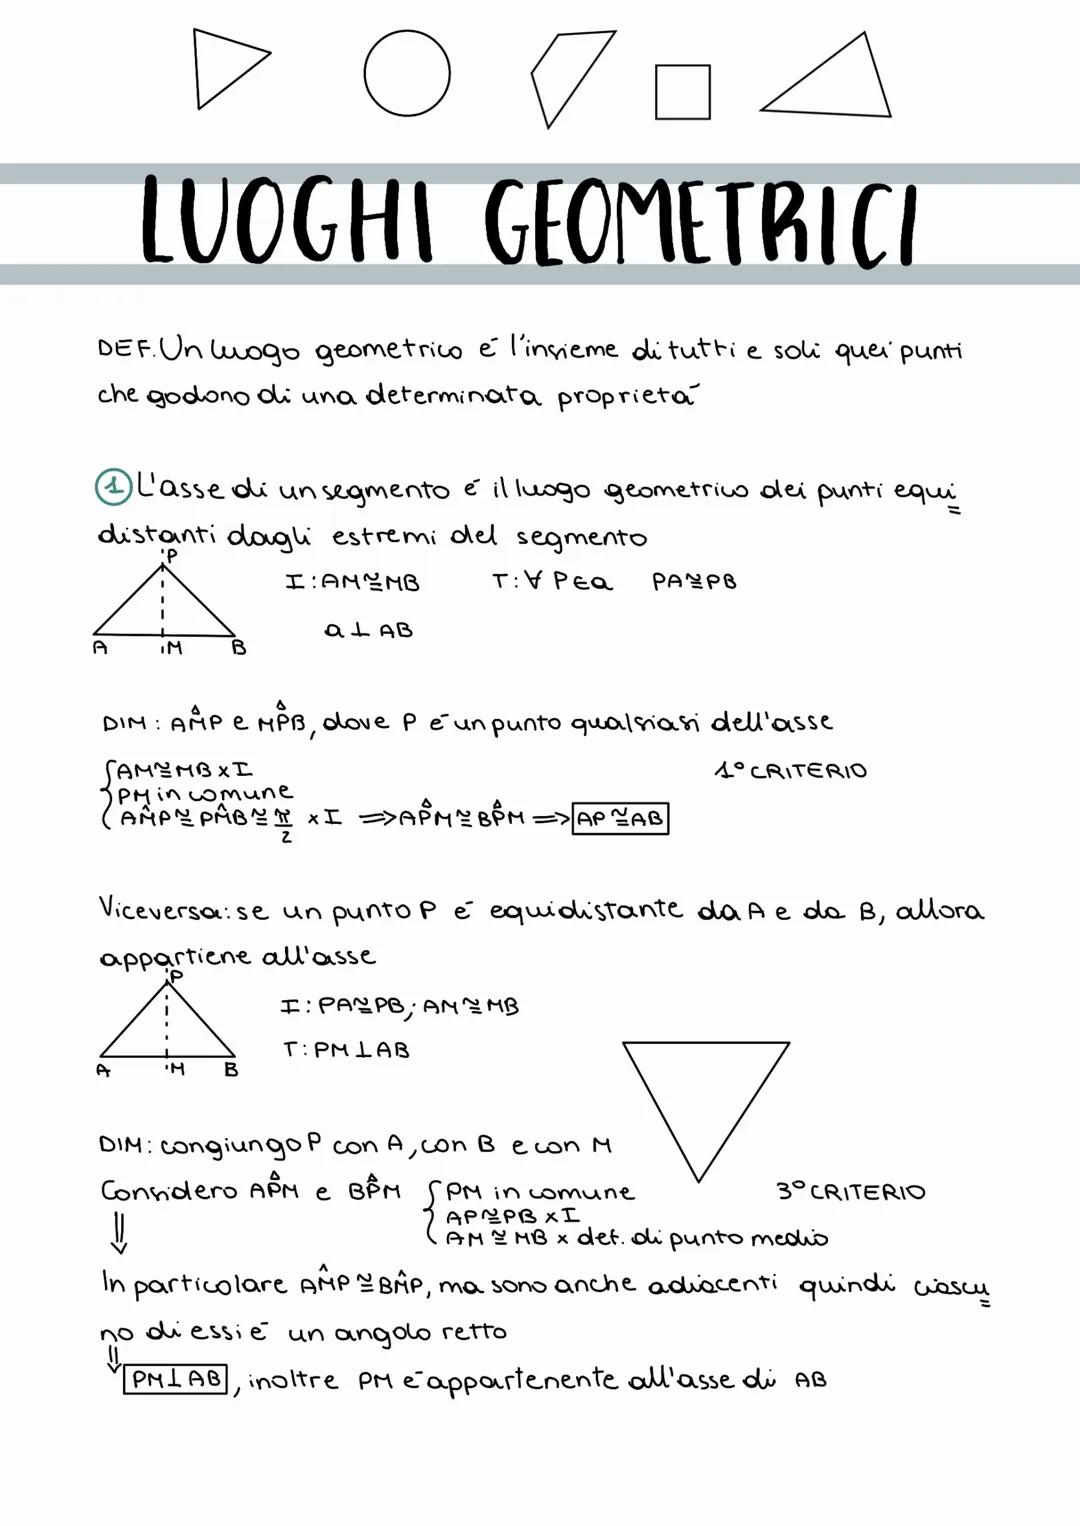 LUOGHI GEOMETRICI
DEF. Un luogo geometrico é l'insieme di tutti e soli quei punti
che godono di una determinata proprietá
① L'asse di un segmento é il luogo geometrico dei punti equi=
distanti dagli estremi del segmento
P
I: AM≅MB T: ∀ P∈a PA≅PB
a ⊥ AB
A M B
DIM: AM̂P e MP̂B, dove P é un punto qualsiasi dell'asse
AM≅MB x I 1° CRITERIO
PM in comune
AM̂P≅PM̂B≅π/2 x I ⇒ AP̂M≅BP̂M ⇒ AP≅AB
Viceversa: se un punto P é equidistante da A e da B, allora
appartiene all'asse
P
I: PA≅PB; AM≅MB
T: PM⊥AB
A M B
DIM: congiungo P con A, con B e con M
Considero AP̂M e BP̂M { PM in comune 3° CRITERIO
AP≅PB x I
⇓ AM≅MB x def. di punto medio
In particolare AM̂P≅BM̂P, ma sono anche adiacenti quindi ciascu=
no di essi é un angolo retto
⇓ PM⊥AB, inoltre PM é appartenente all'asse di AB